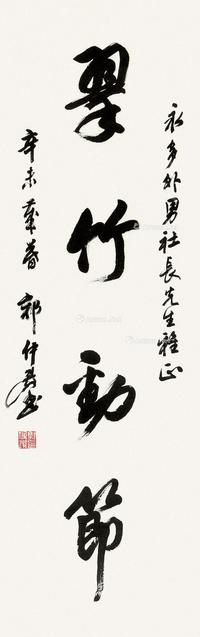 永多外男社長先生雅正
翠竹動節
辛未年春 郭仲選書